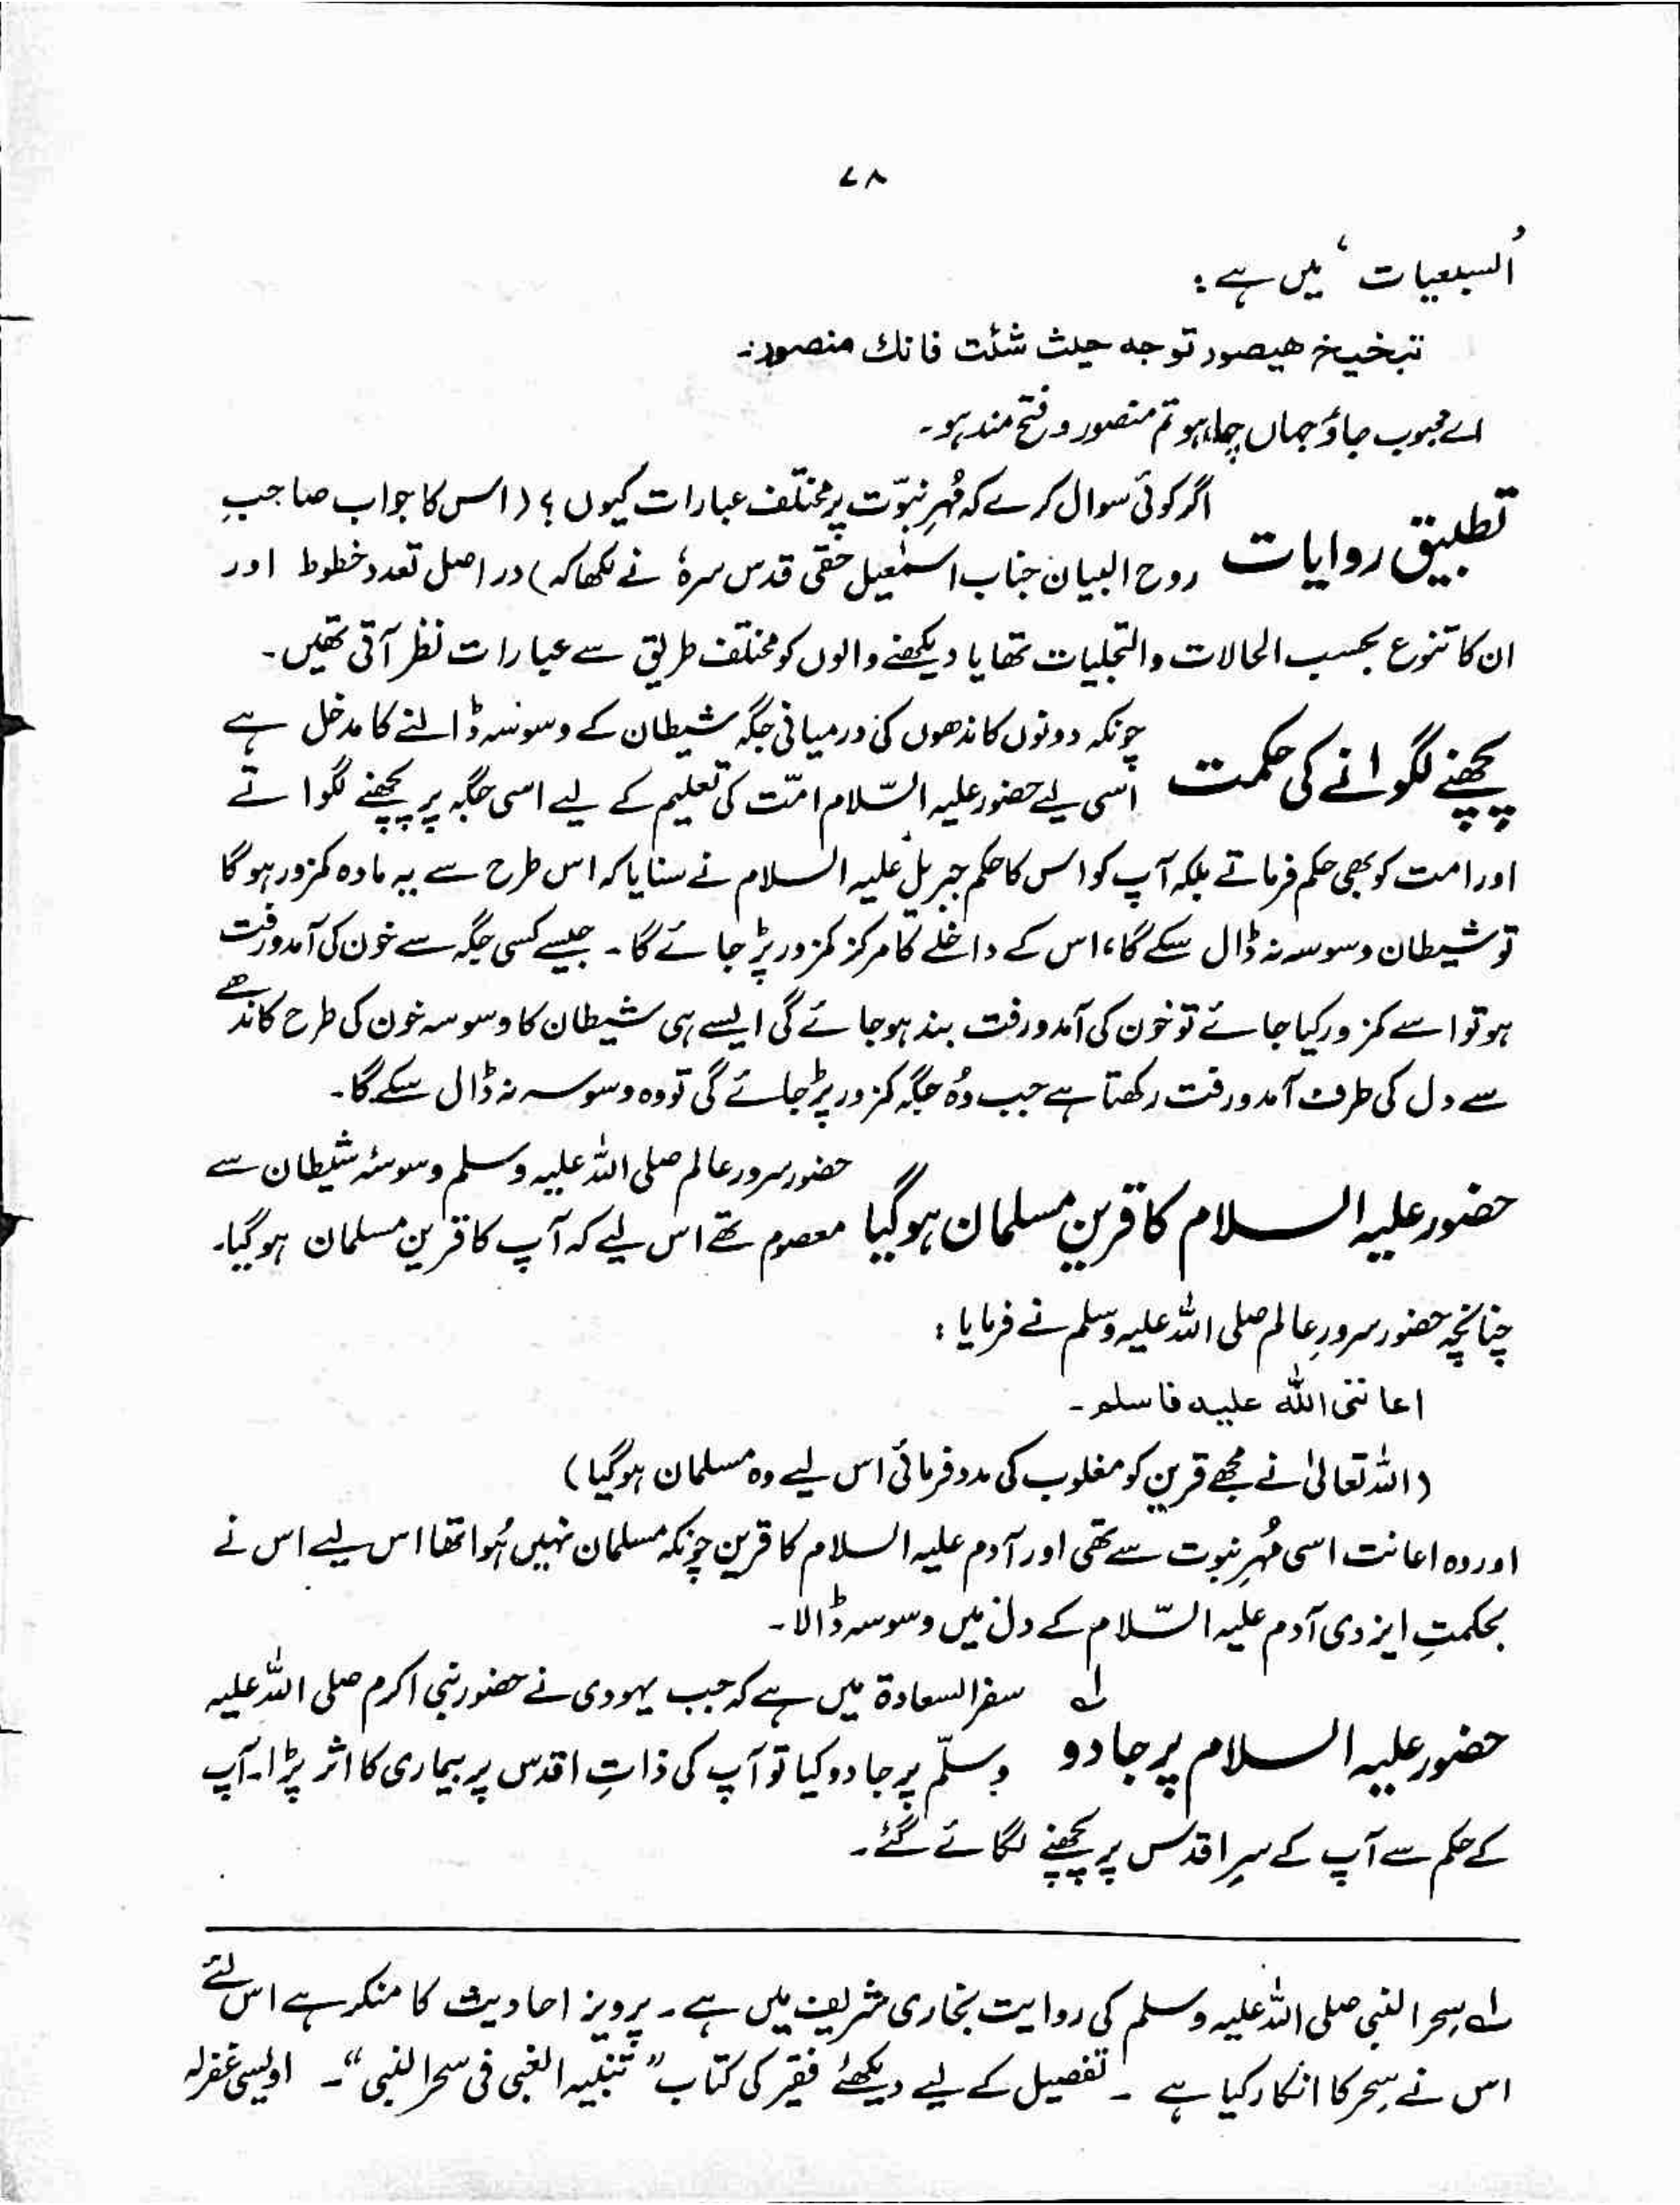 ۷۸
'السبعیات' میں ہے:
تبخیخ ھیصور توجہ حیث شئت فانك منصور۔
اے محبوب جاؤ جہاں چاہو تم منصور و فتح مند ہو۔
تطبیق روایات
اگر کوئی سوال کرے کہ مُہرِ نبوّت پر مختلف عبارات کیوں؟ (اس کا جواب صاحبِ
روح البیان جناب اسمٰعیل حقی قدس سرہٗ نے لکھا کہ) در اصل تعدد خطوط اور
ان کا تنوع بحسب الحالات والتجلیات تھا یا دیکھنے والوں کو مختلف طریق سے عبارات نظر آتی تھیں۔
پچھنے لگوانے کی حکمت
چونکہ دونوں کاندھوں کی درمیانی جگہ شیطان کے وسوسہ ڈالنے کا مدخل ہے
اسی لیے حضور علیہ السّلام امّت کی تعلیم کے لیے اسی جگہ پر پچھنے لگواتے
اور امت کو بھی حکم فرماتے بلکہ آپ کو اس کا حکم جبریل علیہ السلام نے سنایا کہ اس طرح سے یہ مادہ کمزور ہوگا
تو شیطان وسوسہ نہ ڈال سکے گا، اس کے داخلے کا مرکز کمزور پڑ جائے گا۔ جیسے کسی جگہ سے خون کی آمدورفت
ہو تو اسے کمزور کیا جائے تو خون کی آمدورفت بند ہو جائے گی ایسے ہی شیطان کا وسوسہ خون کی طرح کاندھے
سے دل کی طرف آمدورفت رکھتا ہے جب وُہ جگہ کمزور پڑ جائے گی تو وہ وسوسہ نہ ڈال سکے گا۔
حضور علیہ السلام کا قرین مسلمان ہوگیا
حضور سرور عالم صلی اللہ علیہ وسلم وسوسۂ شیطان سے
معصوم تھے اس لیے کہ آپ کا قرین مسلمان ہوگیا۔
چنانچہ حضور سرورِ عالم صلی اللہ علیہ وسلم نے فرمایا:
اعاننی اللہ علیہ فاسلم۔
(اللہ تعالیٰ نے مجھے قرین کو مغلوب کی مدد فرمائی اس لیے وہ مسلمان ہوگیا)
اور وہ اعانت اسی مُہرِ نبوت سے تھی اور آدم علیہ السلام کا قرین چونکہ مسلمان نہیں ہُوا تھا اس لیے اس نے
بحکمتِ ایزدی آدم علیہ السّلام کے دل میں وسوسہ ڈالا۔
حضور علیہ السلام پر جادو ؎۱
سفر السعادۃ میں ہے کہ جب یہودی نے حضور نبی اکرم صلی اللہ علیہ
وسلّم پر جادو کیا تو آپ کی ذاتِ اقدس پر بیماری کا اثر پڑا۔ آپ
کے حکم سے آپ کے سرِ اقدس پر پچھنے لگائے گئے۔
؎۱ سِحر النبی صلی اللہ علیہ وسلم کی روایت بخاری شریف میں ہے۔ پرویز احادیث کا منکر ہے اس لئے
اس نے سِحر کا انکار کیا ہے ۔ تفصیل کے لیے دیکھئے فقیر کی کتاب "تنبیہ الغبی فی سحر النبی"۔ اویسی غفرلہ